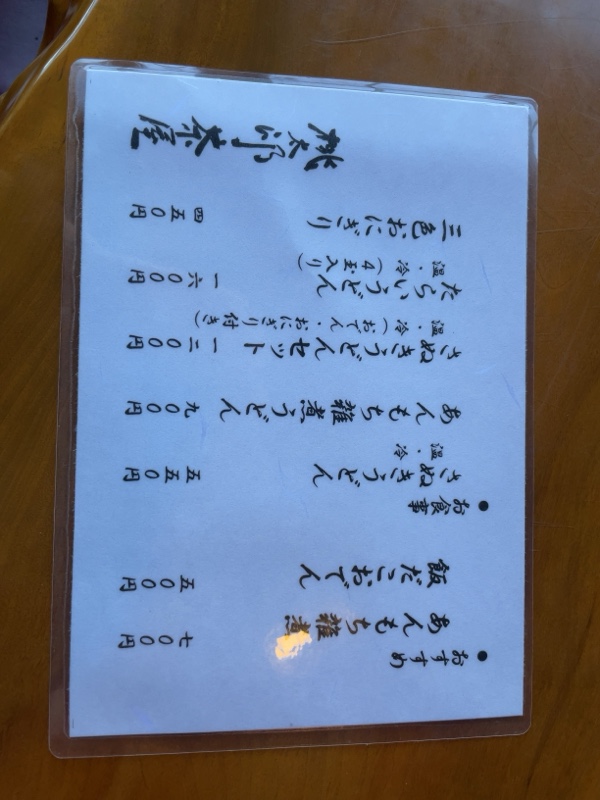 ●おすすめ
あんもち雑煮 七〇〇円
飯だこおでん 五〇〇円
●お食事
さぬきうどん 五五〇円
温・冷
あんもち雑煮うどん 九〇〇円
さぬきうどんセット 一二〇〇円
温・冷(おでん・おにぎり付き)
たらいうどん 一六〇〇円
温・冷(4玉入り)
三色おにぎり 四五〇円
桃太郎茶屋